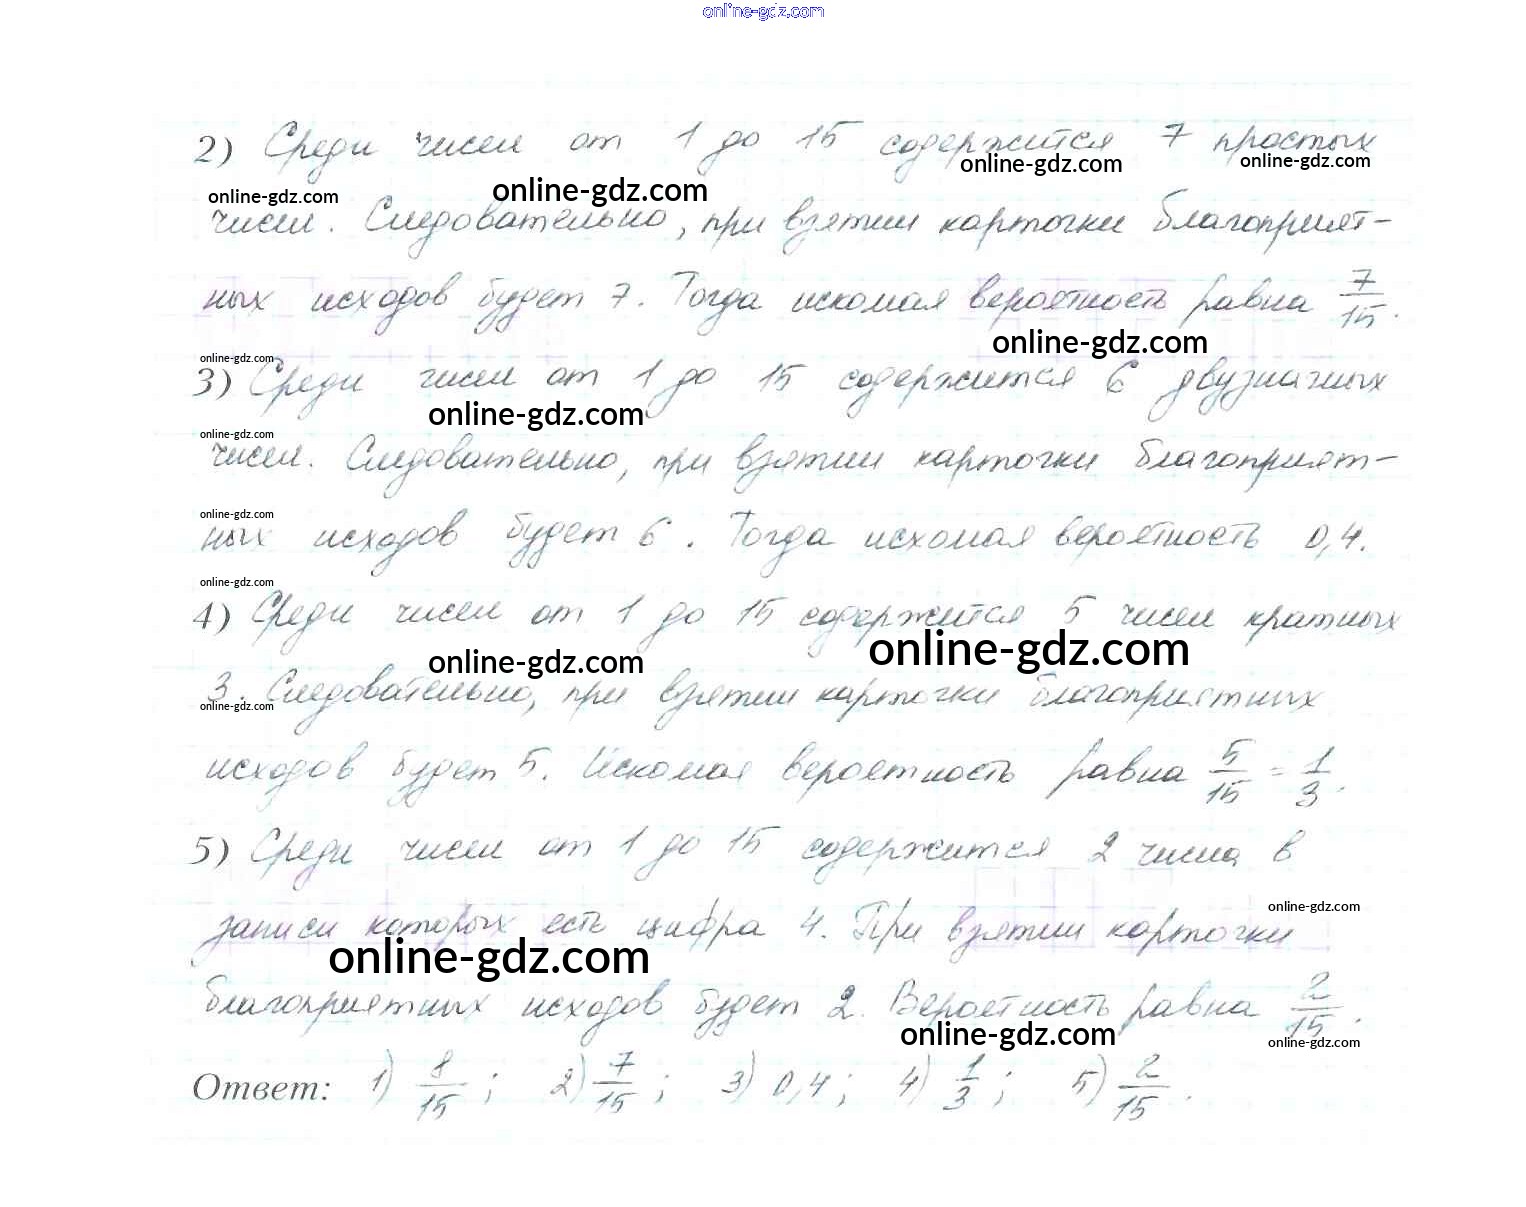 online-gdz.com
2) Среди чисел от 1 до 15 содержится 7 простых
online-gdz.com online-gdz.com online-gdz.com online-gdz.com
чисел. Следовательно, при взятии карточки благоприят-
ных исходов будет 7. Тогда искомая вероятность равна 7/15.
online-gdz.com online-gdz.com
3) Среди чисел от 1 до 15 содержится 6 двузначных
online-gdz.com
online-gdz.com
чисел. Следовательно, при взятии карточки благоприят-
online-gdz.com
ных исходов будет 6. Тогда искомая вероятность 0,4.
online-gdz.com
4) Среди чисел от 1 до 15 содержится 5 чисел кратных
online-gdz.com online-gdz.com
3. Следовательно, при взятии карточки благоприятных
online-gdz.com
исходов будет 5. Искомая вероятность равна 5/15 = 1/3.
5) Среди чисел от 1 до 15 содержится 2 числа, в
online-gdz.com
записи которых есть цифра 4. При взятии карточки
online-gdz.com
благоприятных исходов будет 2. Вероятность равна 2/15.
online-gdz.com online-gdz.com
Ответ: 1) 8/15; 2) 7/15; 3) 0,4; 4) 1/3; 5) 2/15.